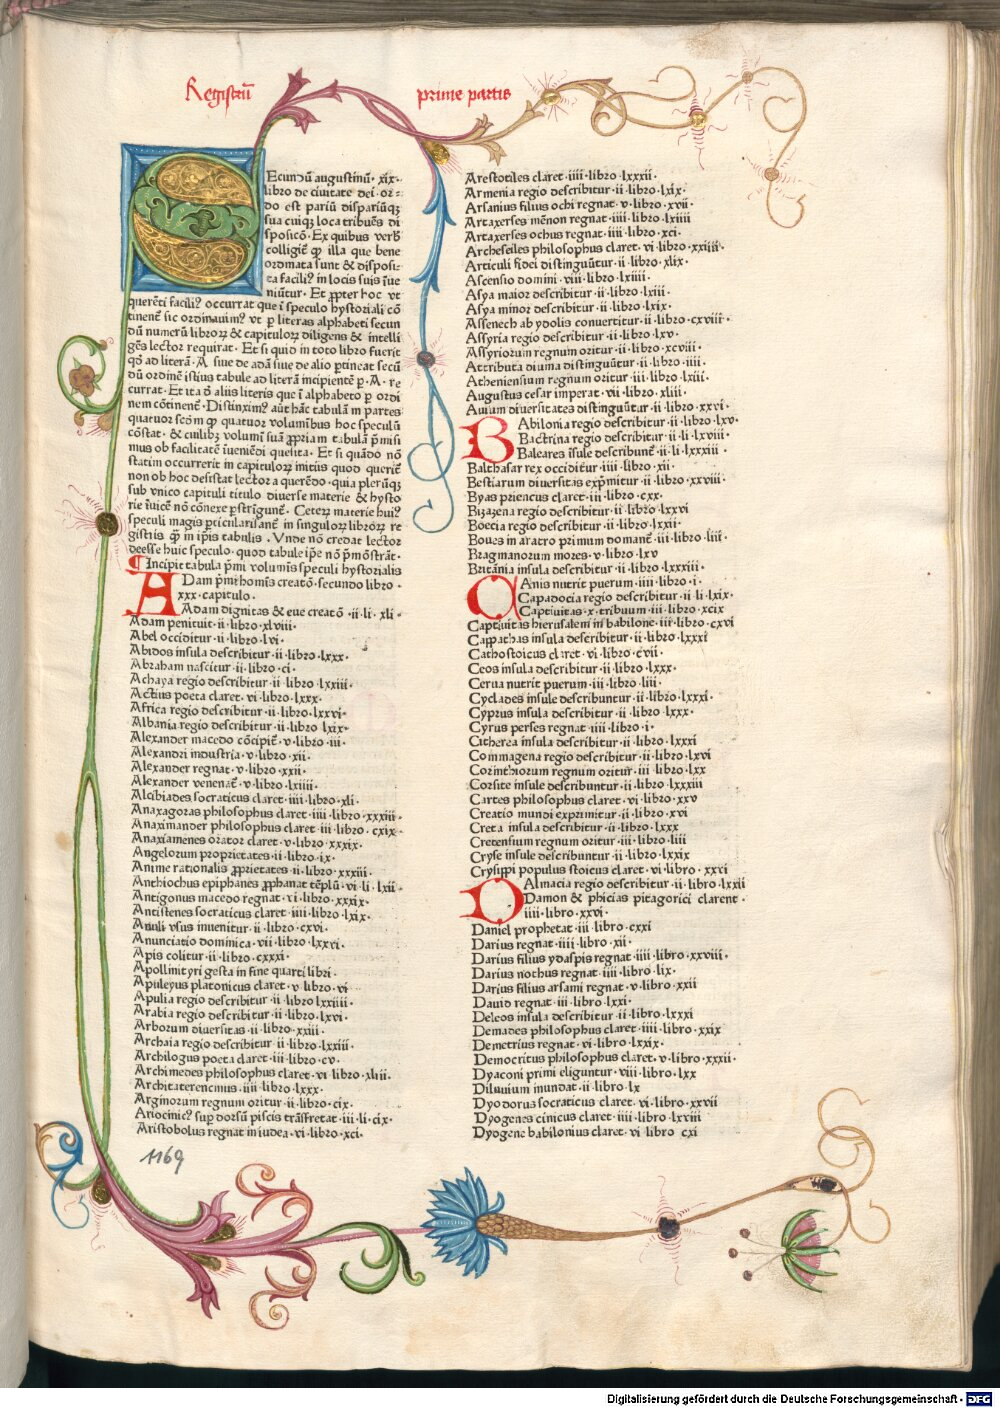 Registrū prime partis
SEcundū augustinū · xix ·
libro de ciuitate dei · or=
do est pariū dispariūqꝫ
sua cuiqꝫ loca tribuēs di
sposicō · Ex quibus verb
colligiť ꝙ illa que bene
ordinata sunt & disposi-
ta facili⁹ in locis suis īue
niūtur · Et ꝓpter hoc vt
querēti facili⁹ occurrat que ī speculo hystoriali cō
tinenť sic ordinauim⁹ vt ꝑ literas alphabeti secun
dū numerū libroꝝ & capituloꝝ diligens & intelli
gēs lector requirat · Et si quid in toto libro fuerit
qď ad literā · A · siue de adā siue de alio ꝑtineat secū
dū ordinē istius tabule ad literā incipientē ꝑ · A · re
currat · Et ita ď aliis literis que ī alphabeto ꝑ ordi
nem cōtinenť · Distinxim⁹ aūt hāc tabulā in partes
quatuor scďm ꝙ quatuor volumibus hoc speculū
cōstat · & cuilibꝫ volumī suā ꝓpriam tabulā p̄misi
mus ob facilitatē īueniēdi quesita · Et si quādo nō
statim occurrerit in capituloꝝ initiis quod queriť
non ob hoc desistat lector a querēdo · quia plerūqꝫ
sub vnico capituli titulo diuerse materie & hysto
rie īuicē nō cōnexe ꝑstrigunť · Ceteꝝ materie hui⁹
speculi magis ꝑticularisanť in singuloꝝ libroꝝ re
gistris ꝙ in ip̄is tabulis · Vnde nō credat lector
deesse huic speculo · quod tabule ip̄e nō p̄mōstrāt ·
Incipit tabula p̄mi volumīs speculi hystorialis
ADam p̄mi homīs creatō · secundo libro ·
xxx · capitulo ·
Adam dignitas & eue creatō · ii · li · xli ·
Adam penituit · ii · libro · xlviii ·
Abel occiditur · ii · libro · lvi ·
Abidos insula describitur · ii · libro · lxxx ·
Abraham nascitur · ii · libro · ci ·
Achaya regio describitur · ii · libro · lxxiii ·
Actius poeta claret · vi · libro · lxxx ·
Africa regio describitur · ii · libro · lxxvi ·
Albania regio describitur · ii · libro · lxix ·
Alexander macedo cōcipiť · v · libro · iii ·
Alexandri industria · v · libro · xii ·
Alexander regnat · v · libro · xxii ·
Alexander venenať · v · libro · lxiiii ·
Alcibiades socraticus claret · iiii · libro · xli ·
Anaxagoras philosophus claret · iiii · libro · xxxiii ·
Anaximander philosophus claret · iii · libro · cxix ·
Anaxiamenes orator claret · v · libro · xxxix ·
Angelorum proprietates · ii · libro · ix ·
Anime rationalis ꝓprietates · ii · libro · xxxiii ·
Anthiochus epiphanes ꝓphanat tēplū · vi · li · lxii ·
Antigonus macedo regnat · vi · libro · xxxix ·
Antistenes socraticus claret · iiii · libro · lxix ·
Anuli vsus inuenitur · ii · libro · cxvi ·
Anunciatio dominica · vii · libro · lxxvi ·
Apis colitur · ii · libro · cxxxi ·
Apollinityri gesta in fine quarti libri ·
Apuleyus platonicus claret · v · libro · vi ·
Apulia regio describitur · ii · libro lxxiiii ·
Arabia regio describitur · ii · libro · lxvi ·
Arborum diuersitas · ii · libro · xxiii ·
Archaia regio describitur · ii · libro · lxxiii ·
Archilogus poeta claret · iii · libro · cv ·
Archimedes philosophus claret · vi · libro · xliii ·
Architaterencinus · iiii · libro · lxxx ·
Arginorum regnum oritur · ii · libro · cix ·
Ariocinic⁹ suꝑ dorsū piscis trāsfretat · iii · li · cix ·
Aristobolus regnat in iudea · vi · libro · xci ·
1169
Arestotiles claret · iiii · libro · lxxxii ·
Armenia regio describitur · ii · libro · lxix ·
Arsanius filius ochi regnat · v · libro · xvii ·
Artaxerses mēnon regnat · iiii · libro · lxiiii
Artaxerses ochus regnat · iiii · libro · xci ·
Archeseiles philosophus claret · vi · libro · xxiiii ·
Articuli fidei distinguūtur · ii · libro · xlix ·
Ascensio domini · viii · libro · lxiiii ·
Asya maior describitur · ii · libro · lxiii ·
Asya minor describitur · ii · libro · lxix ·
Assenech ab ydolis conuertitur · ii · libro · cxviii ·
Assyria regio describitur · ii · libro · lxv ·
Assyriorum regnum oritur · ii · libro · xcviii ·
Attributa diuina distinguūtur · ii · libro · iiii ·
Atheniensium regnum oritur · iii · libro · lxiii ·
Augustus cesar imperat · vii · libro · xliii ·
Auium diuersitates distinguūtur · ii · libro · xxvi ·
BAbilonia regio describitur · ii · libro · lxv ·
Bactrina regio describitur · ii · li · lxviii ·
Baleares īsule describunť · ii · li · lxxxiii ·
Balthasar rex occiditur · iiii · libro · xii ·
Bestiarum diuersitas exp̄mitur · ii · libro · xxviii ·
Byas priencus claret · iii · libro · cxx ·
Bizazena regio describitur · ii · libro · lxxvi
Boecia regio describitur · ii · libro · lxxii ·
Boues in aratro primum domanť · iii · libro · liii ·
Bragmanorum mores · v · libro · lxv
Britānia insula describitur · ii · libro · lxxxiii ·
CAnis nutrit puerum · iiii · libro · i ·
Capadocia regio describitur · ii · li · lxix ·
Captiuitas · x · tribuum · iii · libro · xcix
Captiuitas hierusalem in babilone · iii · libro · cxvi
Carpathas insula describitur · ii · libro · lxxxi
Cathostoicus claret · vi · libro · cvii ·
Ceos insula describitur · ii · libro · lxxx ·
Cerua nutrit puerum · iii · libro · liii ·
Cyclades insule describuntur · ii · libro · lxxxi ·
Cyprus insula describitur · ii · libro · lxxx ·
Cyrus perses regnat · iiii · libro · i ·
Citherea insula describitur · ii · libro · lxxxi
Commagena regio describitur · ii · libro · lxvi
Corinthiorum regnum oritur · iii · libro · lxx
Corsice insule describuntur · ii · libro · lxxxiii
Cartes philosophus claret · vi · libro · xxv
Creatio mundi exprimitur · ii · libro · xvi
Creta insula describitur · ii · libro · lxxx
Cretensium regnum oritur · iii · libro · liii
Cryse insule describuntur · ii · libro · lxxix
Crysippi populus stoicus claret · vi · libro · xxvi
DAlmacia regio describitur · ii · libro · lxxii
Damon & phicias pitagorici clarent ·
iiii · libro · xxvi ·
Daniel prophetat · iii · libro · cxxi
Darius regnat · iiii · libro · xii ·
Darius filius ydaspis regnat · iiii · libro · xxviii ·
Darius nothus regnat · iiii · libro · lix ·
Darius filius arsami regnat · v · libro · xxii
Dauid regnat · iii · libro · lxxi ·
Deleos insula describitur · ii · libro · lxxxi
Demades philosophus claret · iiii · libro · xxix
Demetrius regnat · vi · libro · lxxix ·
Democritus philosophus claret · v · libro · xxxii ·
Dyaconi primi eliguntur · viii · libro · lxx
Diluuium inundat · ii · libro · lx
Dyodorus socraticus claret · vi · libro · xxvii
Dyogenes cinicus claret · iiii · libro · lxviii
Dyogene babilonius claret · vi · libro · cxi
Digitalisierung gefördert durch die Deutsche Forschungsgemeinschaft - DFG